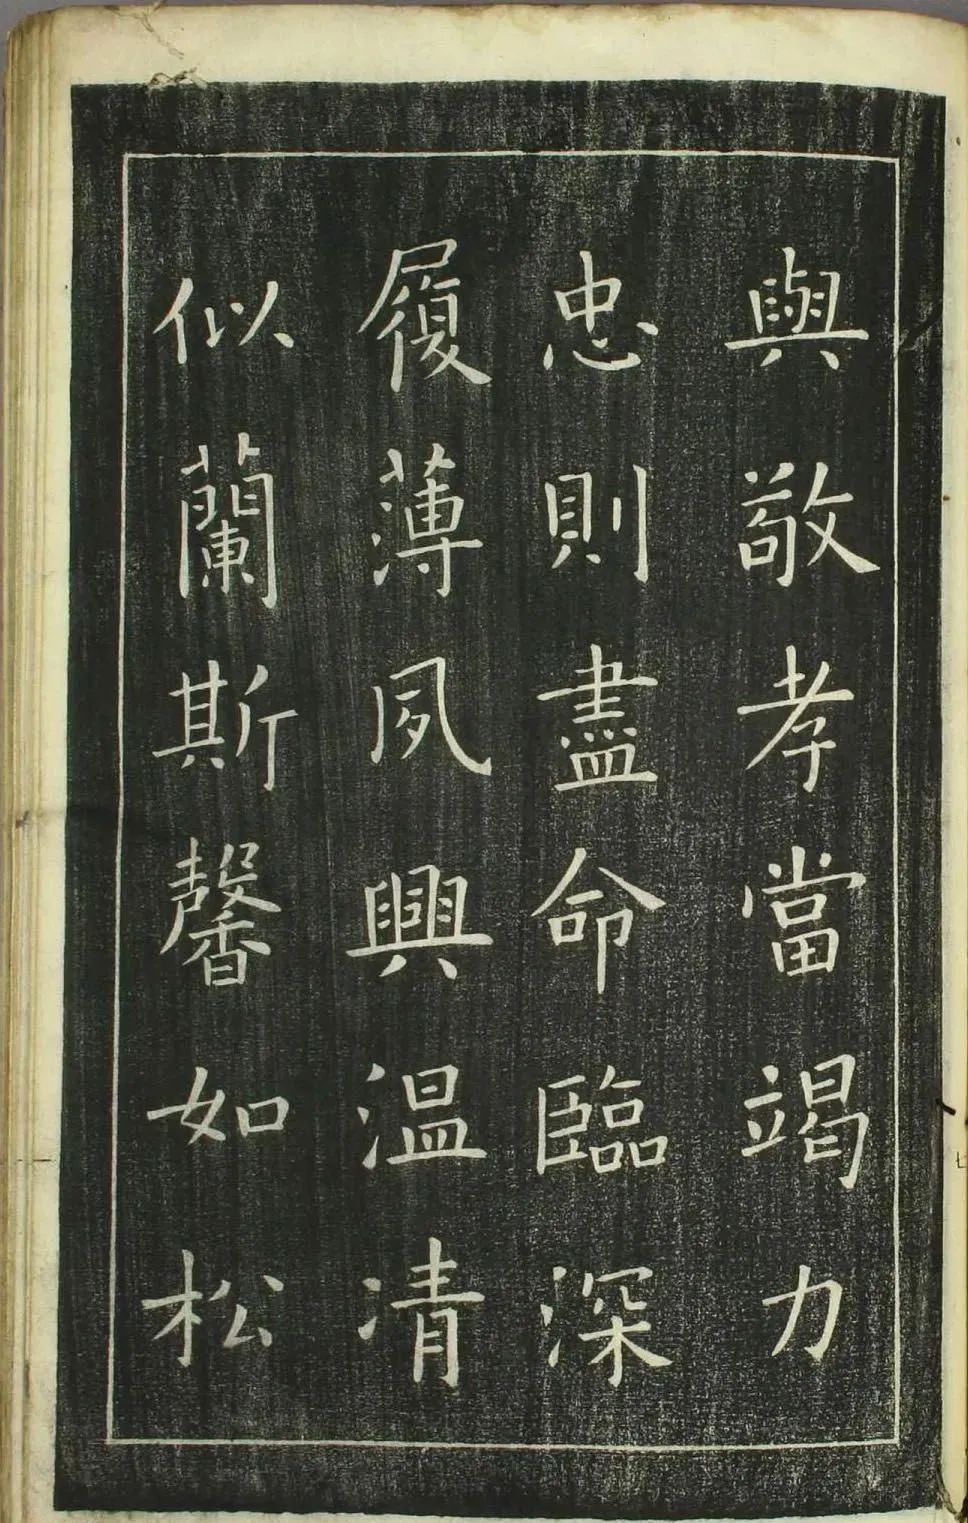 與敬孝當竭力
忠則盡命臨深
履薄夙興温凊
似蘭斯馨如松